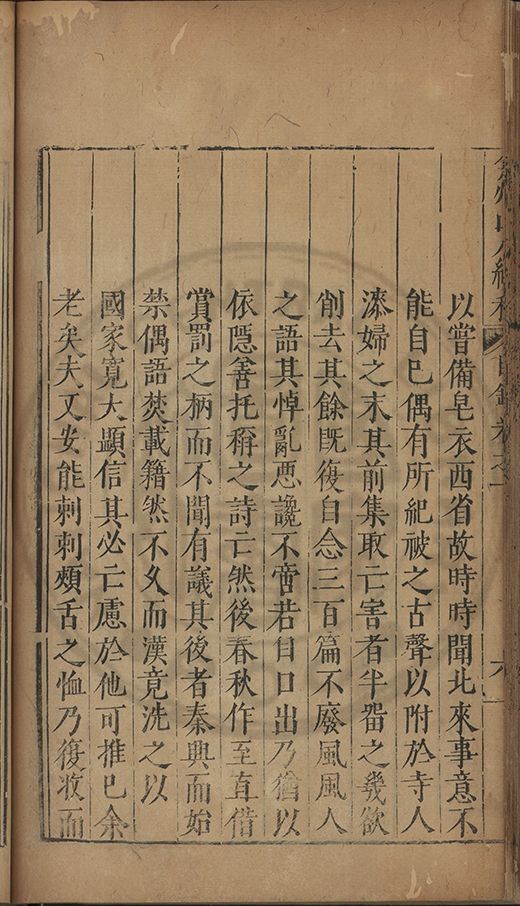 以嘗備皂衣西省故時時聞北來事意不
能自已偶有所紀被之古聲以附於寺人
漆婦之末其前集取亡害者半畱之幾欲
削去其餘旣復自念三百篇不廢風風人
之語其悼亂惡讒不啻若自口出乃猶以
依隱善托稱之詩亡然後春秋作至直借
賞罰之柄而不聞有議其後者秦興而始
禁偶語焚載籍然不久而漢竟洗之以
國家寬大顯信其必亡慮於他可推已余
老矣夫又安能刺刺頰舌之恤乃復收而